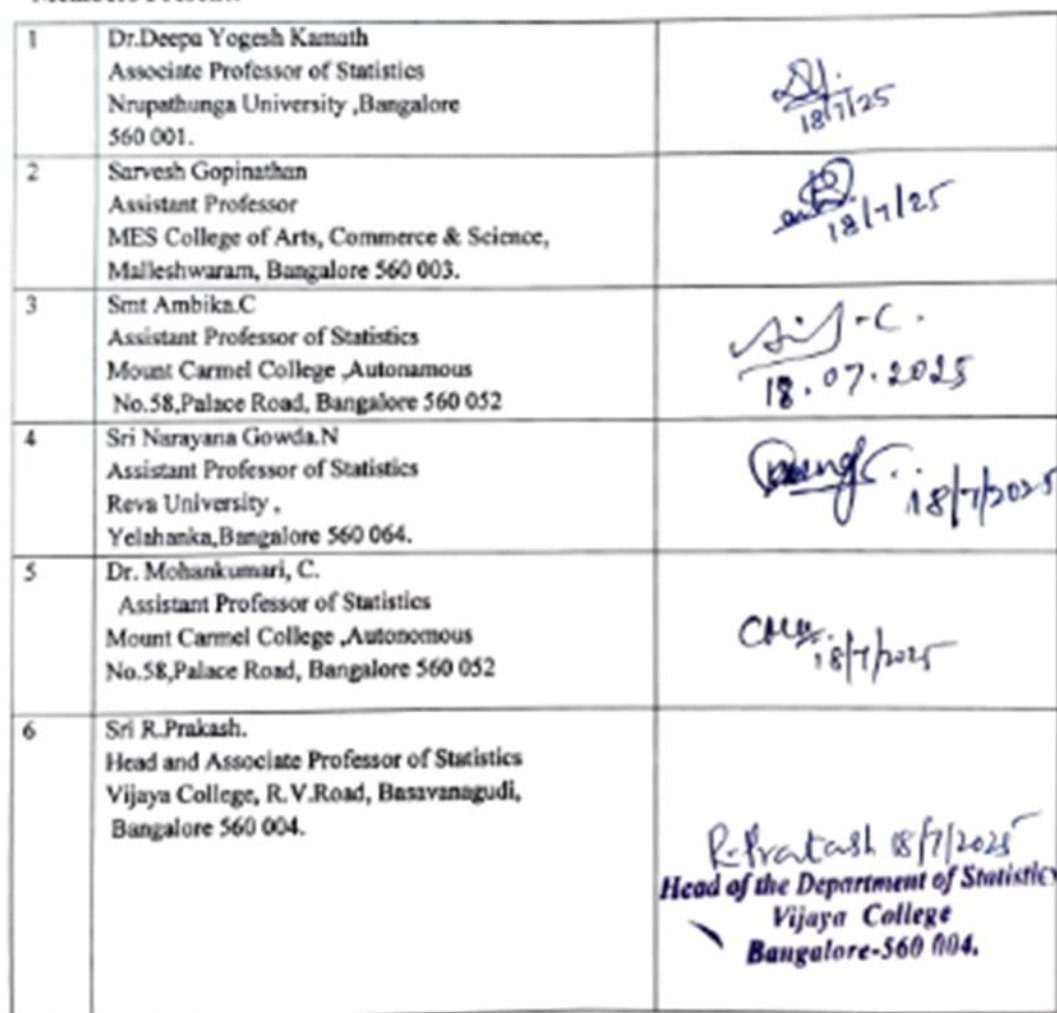 Members Present:
1
Dr.Deepa Yogesh Kamath
Associate Professor of Statistics
Nrupathunga University ,Bangalore
560 001.
18/7/25
2
Sarvesh Gopinathan
Assistant Professor
MES College of Arts, Commerce & Science,
Malleshwaram, Bangalore 560 003.
18/7/25
3
Smt Ambika.C
Assistant Professor of Statistics
Mount Carmel College ,Autonamous
No.58,Palace Road, Bangalore 560 052
18.07.2025
4
Sri Narayana Gowda.N
Assistant Professor of Statistics
Reva University ,
Yelahanka,Bangalore 560 064.
18/7/2025
5
Dr. Mohankumari, C.
Assistant Professor of Statistics
Mount Carmel College ,Autonomous
No.58,Palace Road, Bangalore 560 052
18/7/2025
6
Sri R.Prakash.
Head and Associate Professor of Statistics
Vijaya College, R.V.Road, Basavanagudi,
Bangalore 560 004.
R.Prakash 18/7/2025
Head of the Department of Statistics
Vijaya College
Bangalore-560 004.